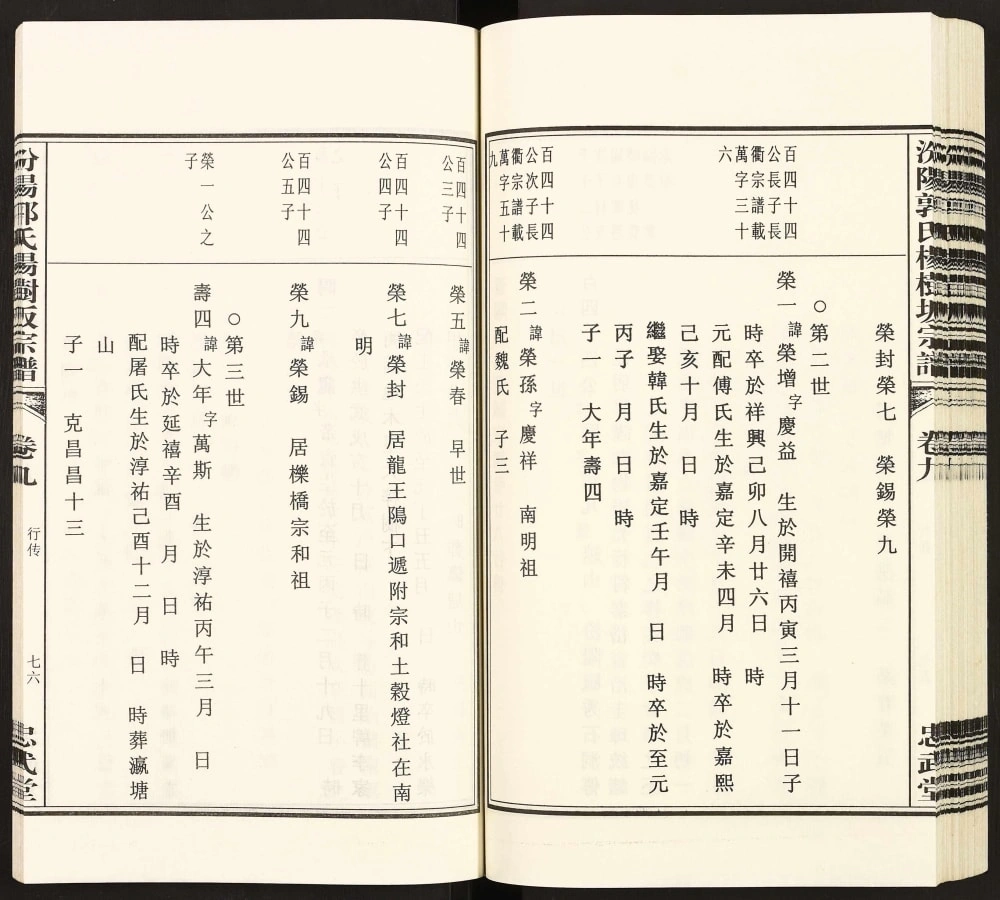 汾陽郭氏楊樹坂宗譜
卷九
忠武堂
榮封榮七　榮錫榮九
○第二世
百四十四
公長子長
衢宗譜載
萬字三十
六
榮一諱榮增字慶益　生於開禧丙寅三月十一日子
時卒於祥興己卯八月廿六日　時
元配傅氏生於嘉定辛未四月　時卒於嘉熙
己亥十月　日　時
繼娶韓氏生於嘉定壬午月　日　時卒於至元
丙子　月　日　時
子一　大年壽四
百四十四
公次子長
衢宗譜載
萬字五十
九
榮二諱榮孫字慶祥　南明祖
配魏氏　子三
百四十四
公三子
榮五諱榮春　早世
百四十四
公四子
榮七諱榮封　居龍王隖口遞附宗和土穀燈社在南
明
百四十四
公五子
榮九諱榮錫　居櫟橋宗和祖
○第三世
榮一公之
子
壽四諱大年字萬斯　生於淳祐丙午三月　日
時卒於延禧辛酉　月　日　時
配屠氏生於淳祐己酉十二月　日　時葬瀛塘
山
子一　克昌昌十三
汾陽郭氏楊樹坂宗譜
卷九
行传
七六
忠武堂